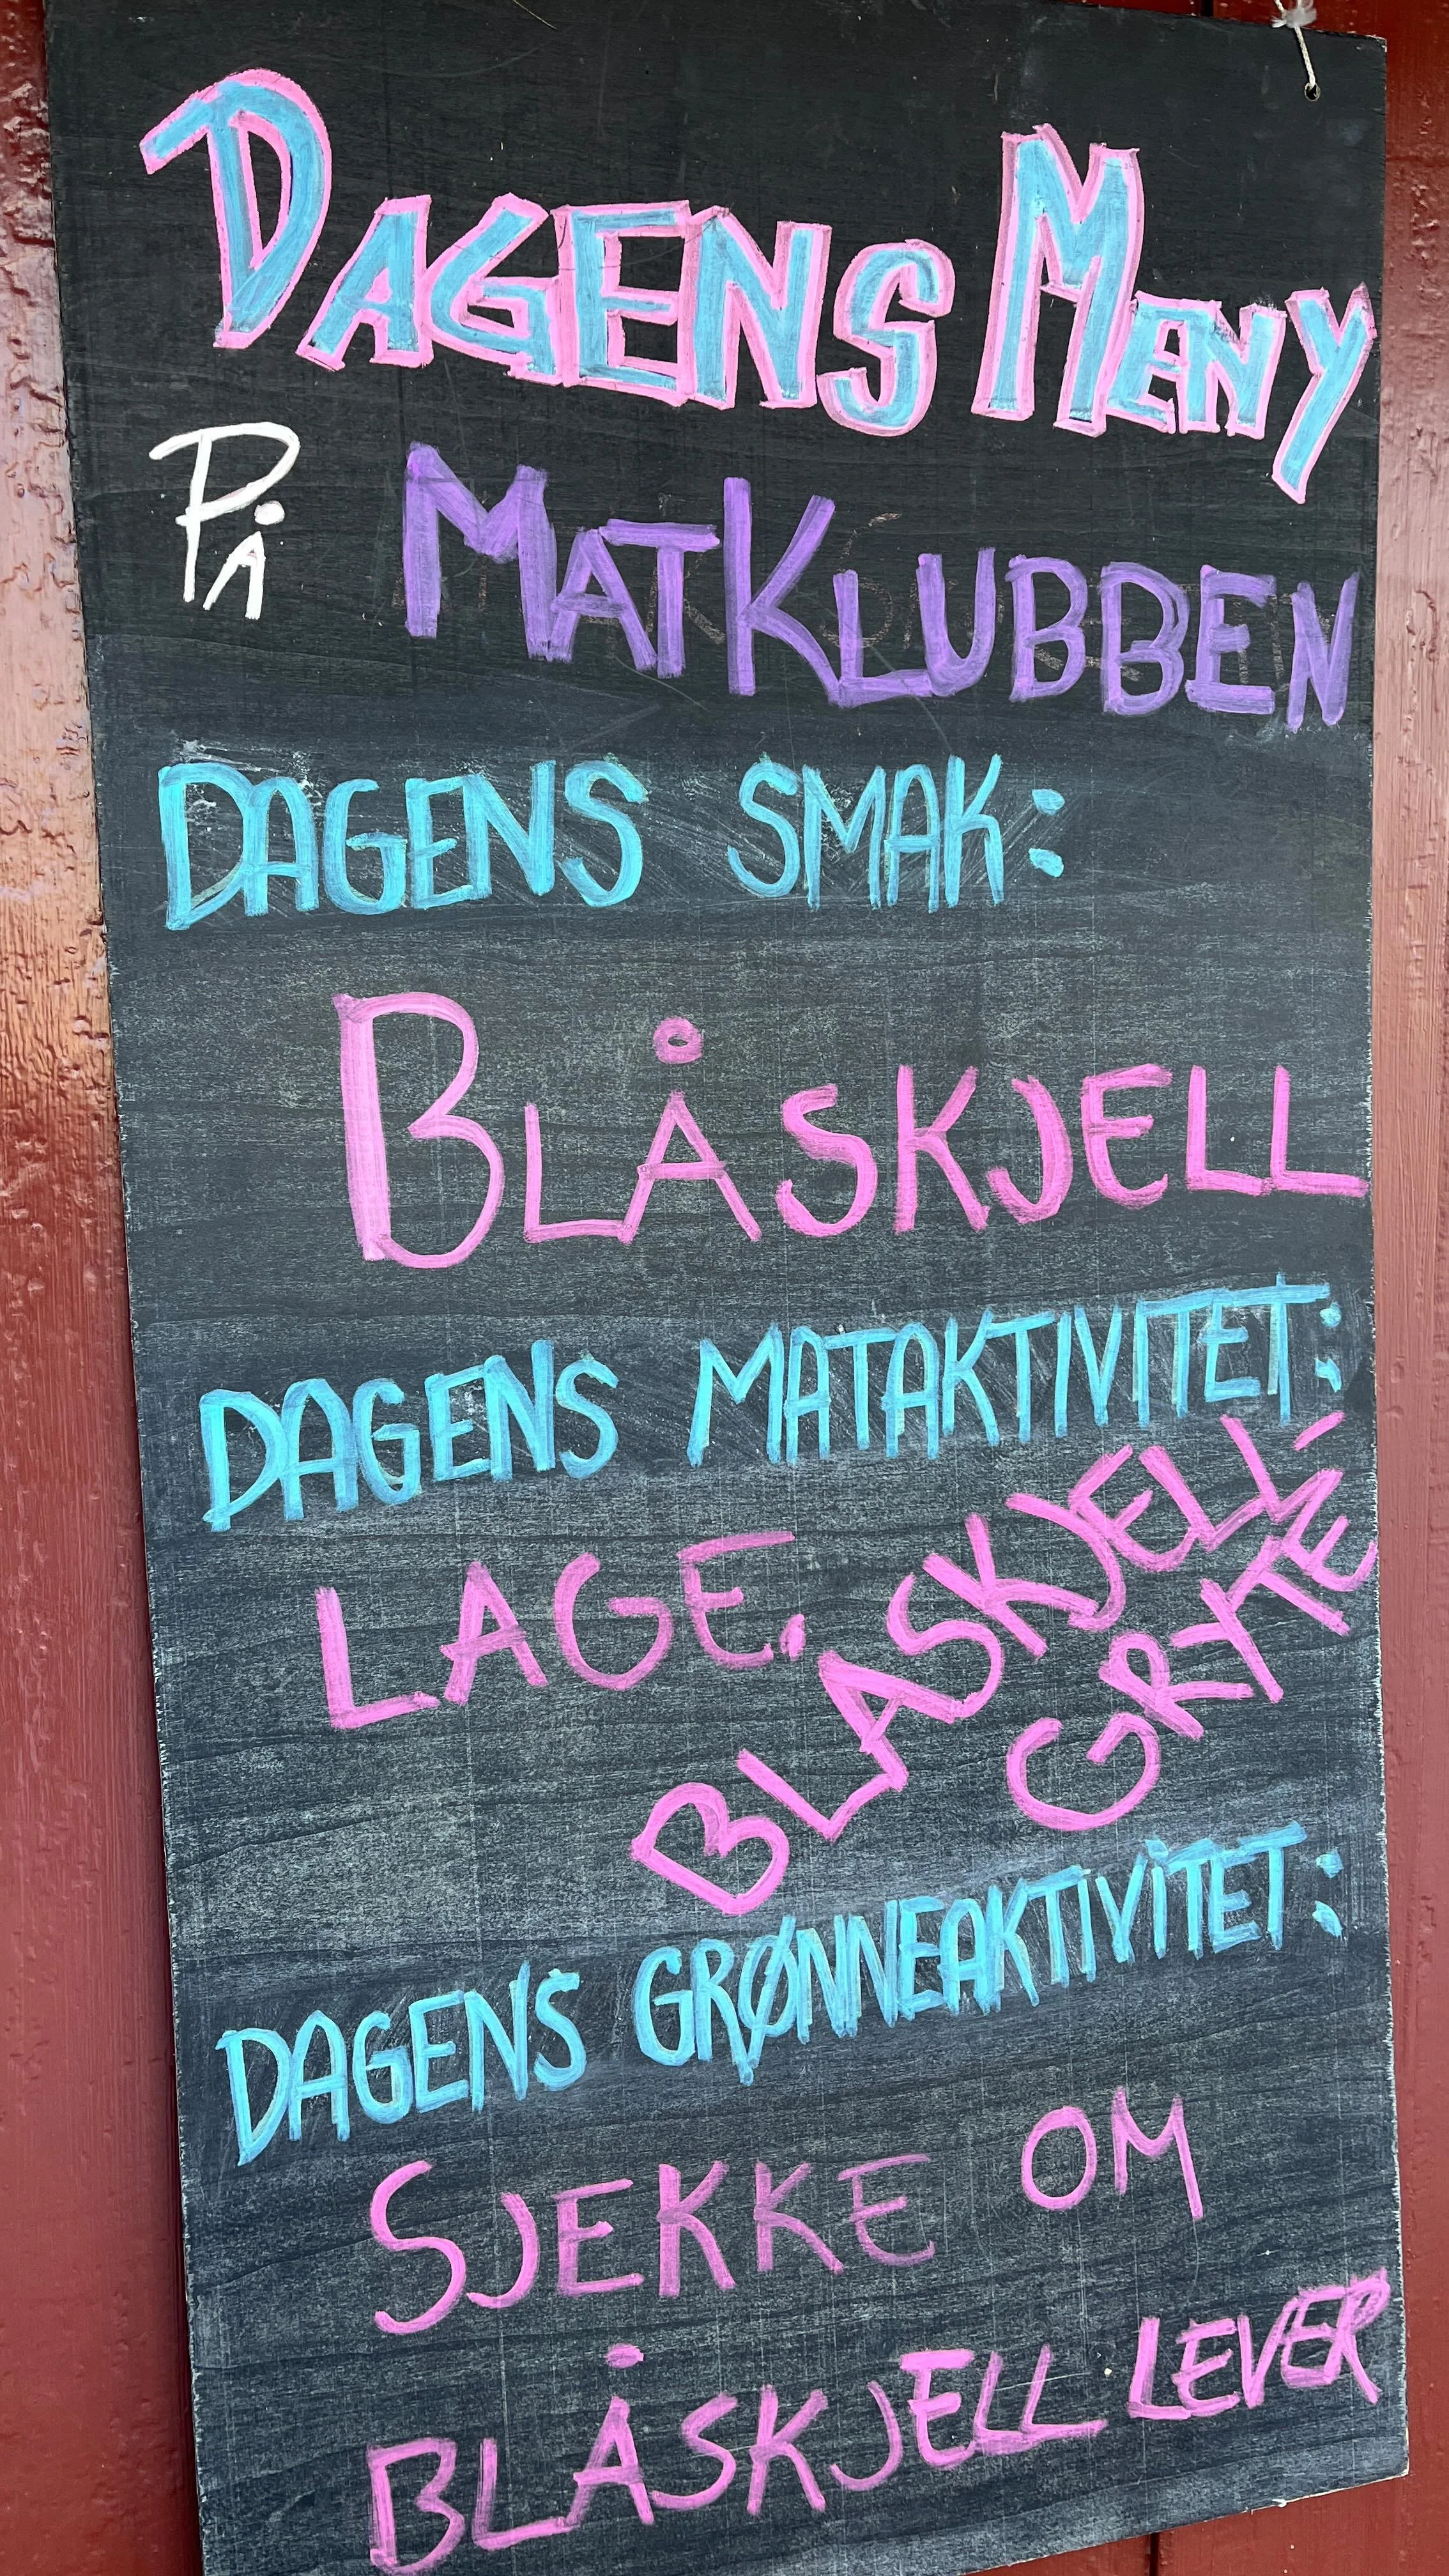 DAGENS MENY
PÅ MATKLUBBEN
DAGENS SMAK:
BLÅSKJELL
DAGENS MATAKTIVITET:
LAGE.
BLASKJELL-
GRYTE
DAGENS GRØNNEAKTIVITET:
SJEKKE OM
BLÅSKJELL LEVER